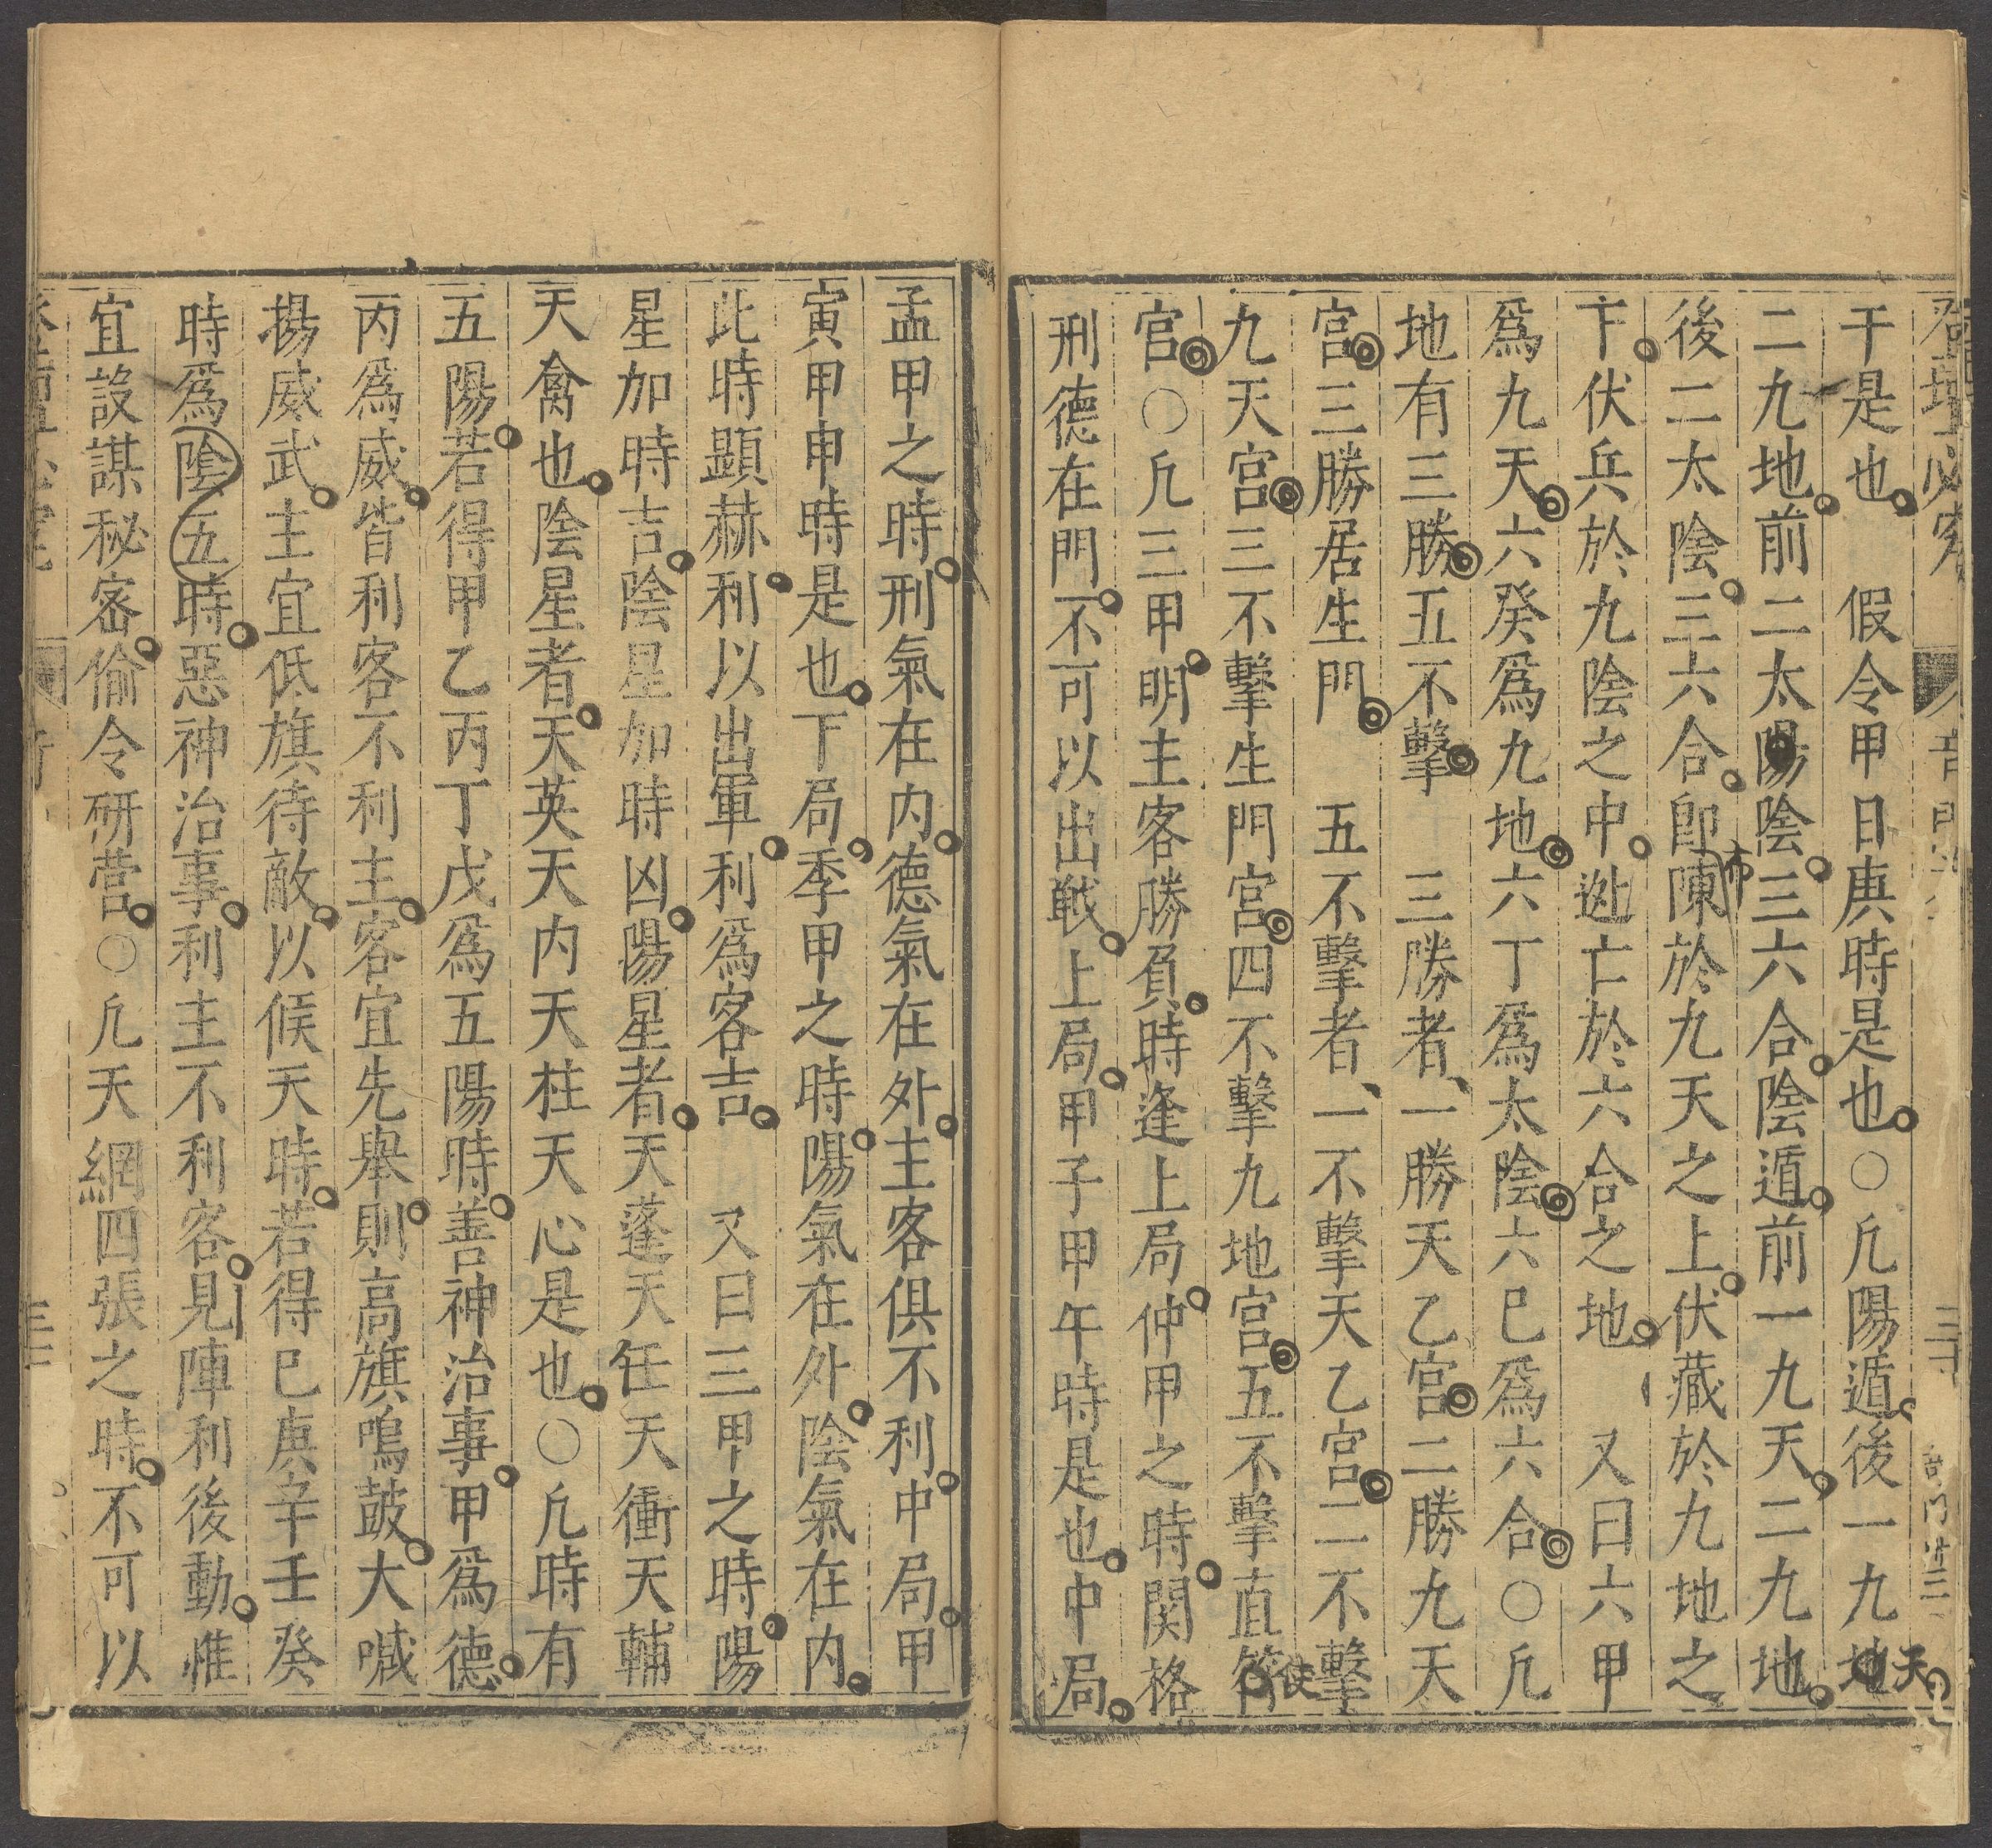 干是也　假令甲日庚時是也○凢陽遁後一九地
二九地前二太陽陰三六合陰遁前一九天二九地
後二太陰三六合卽陳於九天之上伏藏於九地之
下伏兵於九陰之中迯亡於六合之地　又曰六甲
爲九天六癸爲九地六丁爲太陰六巳爲六合○凢
地有三勝五不擊　三勝者一勝天乙宮二勝九天
宮三勝居生門　五不擊者一不擊天乙宮二不擊
九天宮三不擊生門宮四不擊九地宮五不擊直符
宮○凢三甲明主客勝負時逢上局仲甲之時関格
刑德在門不可以出戦上局甲子甲午時是也中局
孟甲之時刑氣在内德氣在外主客俱不利中局甲
寅甲申時是也下局季甲之時陽氣在外陰氣在内
此時顯赫利以出軍利爲客吉　又曰三甲之時陽
星加時吉陰星加時凶陽星者天蓬天任天衝天輔
天禽也陰星者天英天内天柱天心是也○凢時有
五陽若得甲乙丙丁戊爲五陽時善神治事甲爲德
丙爲威皆利客不利主客宜先舉則高旗鳴鼓大喊
揚威武主宜低旗待敵以候天時若得巳庚辛壬癸
時爲陰五時惡神治事利主不利客見陣利後動惟
宜設謀秘密偷令硏營○凢天網四張之時不可以